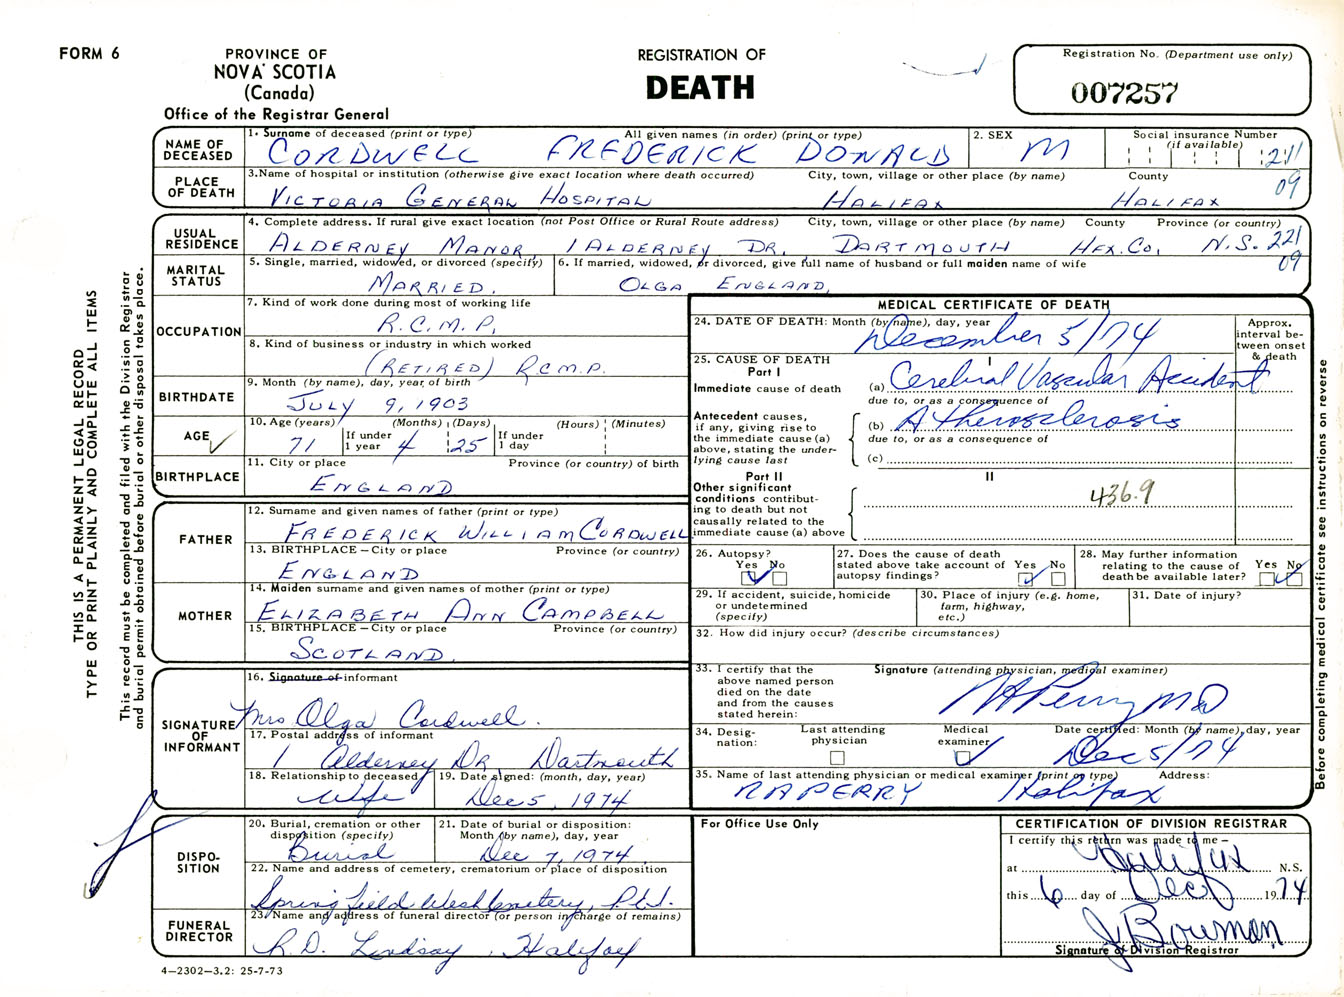 FORM 6
PROVINCE OF
NOVA SCOTIA
(Canada)
Office of the Registrar General
REGISTRATION OF
DEATH
Registration No. (Department use only)
007257
THIS IS A PERMANENT LEGAL RECORD
TYPE OR PRINT PLAINLY AND COMPLETE ALL ITEMS
This record must be completed and filed with the Division Registrar
and burial permit obtained before burial or other disposal takes place.
NAME OF DECEASED
1. Surname of deceased (print or type) All given names (in order) (print or type)
CORDWELL FREDERICK DONALD
2. SEX
M
Social insurance Number
(if available)
211
09
PLACE OF DEATH
3.Name of hospital or institution (otherwise give exact location where death occurred) City, town, village or other place (by name) County
VICTORIA GENERAL HOSPITAL HALIFAX HALIFAX
USUAL RESIDENCE
4. Complete address. If rural give exact location (not Post Office or Rural Route address) City, town, village or other place (by name) County Province (or country)
ALDERNEY MANOR, 1 ALDERNEY DR, DARTMOUTH HFX.CO, N.S. 221
09
MARITAL STATUS
5. Single, married, widowed, or divorced (specify)
MARRIED.
6. If married, widowed, or divorced, give full name of husband or full maiden name of wife
OLGA ENGLAND,
OCCUPATION
7. Kind of work done during most of working life
R.C.M.P.
8. Kind of business or industry in which worked
(RETIRED) R.C.M.P.
BIRTHDATE
9. Month (by name), day, year of birth
JULY 9, 1903
AGE
10. Age (years) (Months) (Days) (Hours) (Minutes)
71 If under 1 year 4 25 If under 1 day
BIRTHPLACE
11. City or place Province (or country) of birth
ENGLAND
FATHER
12. Surname and given names of father (print or type)
FREDERICK WILLIAM CORDWELL
13. BIRTHPLACE – City or place Province (or country)
ENGLAND
MOTHER
14. Maiden surname and given names of mother (print or type)
ELIZABETH ANN CAMPBELL
15. BIRTHPLACE – City or place Province (or country)
SCOTLAND.
SIGNATURE OF INFORMANT
16. Signature of informant
Mrs Olga Cordwell.
17. Postal address of informant
1 Alderney Dr Dartmouth
18. Relationship to deceased
Wife
19. Date signed: (month, day, year)
Dec 5, 1974
DISPO-
SITION
20. Burial, cremation or other disposition (specify)
Burial
21. Date of burial or disposition: Month (by name), day, year
Dec 7, 1974
22. Name and address of cemetery, crematorium or place of disposition
Springfield West Cemetery,
FUNERAL DIRECTOR
23. Name and address of funeral director (or person in charge of remains)
Lindsay, Halifax
4–2302–3.2: 25-7-73
MEDICAL CERTIFICATE OF DEATH
24. DATE OF DEATH: Month (by name), day, year
December 5/74
Approx. interval be-
tween onset & death
25. CAUSE OF DEATH
Part I
I
Immediate cause of death
(a) Cerebral Vascular Accident
due to, or as a consequence of
Antecedent causes, if any, giving rise to the immediate cause (a) above, stating the under-
lying cause last
(b) Atherosclerosis
due to, or as a consequence of
(c)
Part II
II
Other significant conditions contribut-
ing to death but not causally related to the immediate cause (a) above
436.9
26. Autopsy?
Yes No
27. Does the cause of death stated above take account of autopsy findings?
Yes No
28. May further information relating to the cause of death be available later?
Yes No
29. If accident, suicide, homicide or undetermined (specify)
30. Place of injury (e.g. home, farm, highway, etc.)
31. Date of injury?
32. How did injury occur? (describe circumstances)
33. I certify that the above named person died on the date and from the causes stated herein:
Signature (attending physician, medical examiner)
RA Perry MD
34. Desig-
nation:
Last attending physician
Medical examiner
Date certified: Month (by name), day, year
Dec 5/74
35. Name of last attending physician or medical examiner (print or type) Address:
RA PERRY Halifax
Before completing medical certificate see instructions on reverse
For Office Use Only
CERTIFICATION OF DIVISION REGISTRAR
I certify this return was made to me –
at Halifax N.S.
this 6 day of Dec 1974
J Bowman
Signature of Division Registrar